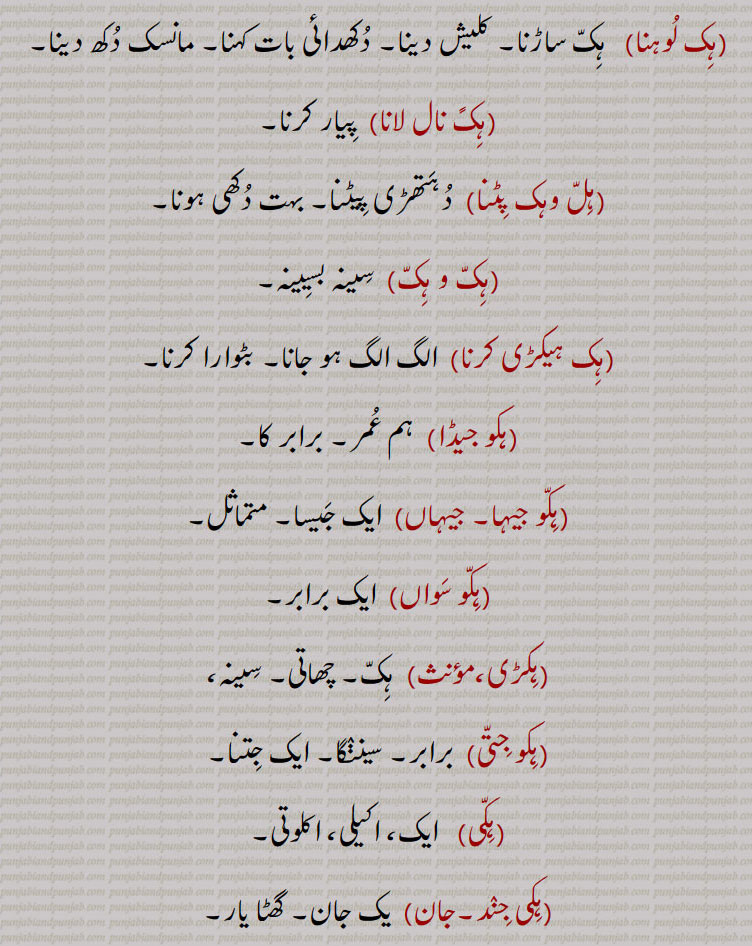 (ہِک لُوہنا) ہِکّ ساڑنا۔ کلیش دینا۔ دُکھدائی بات کہنا۔ مانسک دُکھ دینا۔
(ہِکّ نال لانا) پِیار کرنا۔
(ہِلّ وہک پِٹنا) دُہَتھڑی پِیٹنا۔ بہت دُکھی ہونا۔
(ہِکّ و ہِکّ) سِینہ بسِینہ۔
(ہِک ہیکڑی کرنا) الگ الگ ہو جانا۔ بٹوارا کرنا۔
(ہِکو جیڈا) ہم عُمر۔ برابر کا۔
(ہِکّو جیہا۔ جیہاں) ایک جَیسا۔ متماثل۔
(ہِکّو سَواں) ایک برابر۔
(ہِکڑی،مؤنث) ہِکّ۔ چھاتی۔ سِینہ،
(ہِکو جِتّی) برابر۔ ایک جِتنا۔
(ہِکّی) ایک، اکیلی، اکلوتی۔
(ہِکی جِند۔جان) یک جان۔ گھٹا یار۔
punjabiandpunjab.com